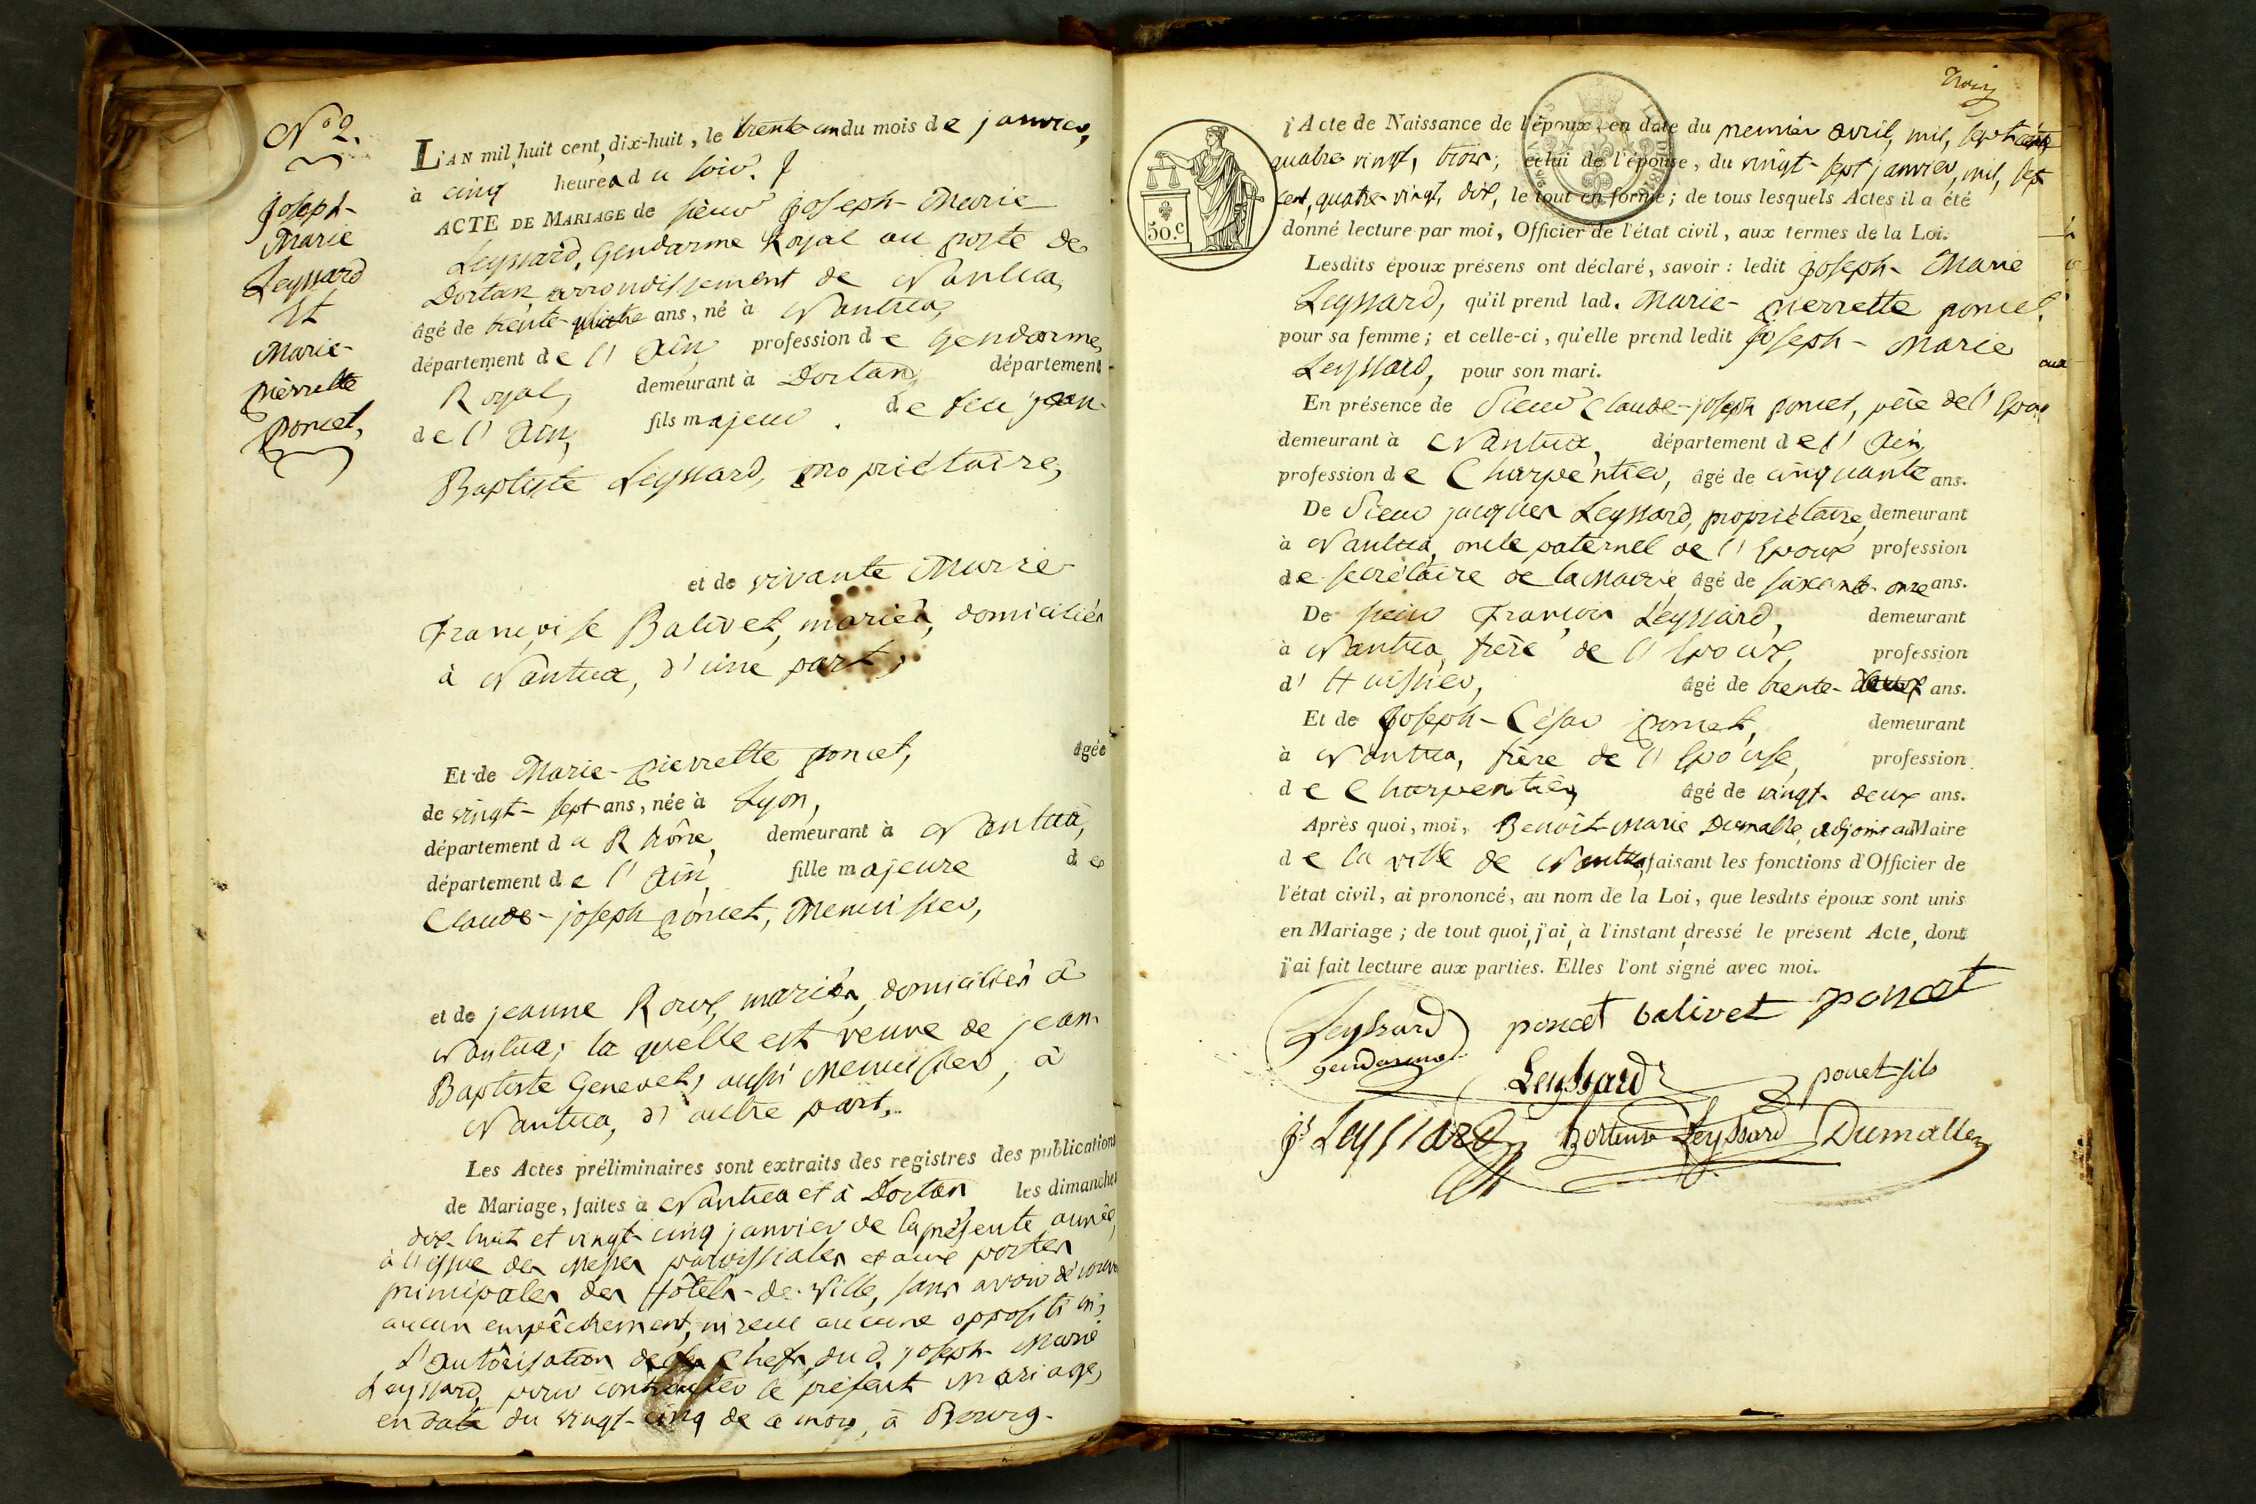 N° 2.
Joseph-
Marie
Leyssard
Et
Marie-
pierrette
poncet,
L'AN mil huit cent dix-huit, le trente un du mois de janvier,
à cinq heures du soir.
ACTE DE MARIAGE de sieur Joseph-Marie
Leyssard, Gendarme Royal au poste de
Dortan, arrondissement de Nantua,
âgé de trente-quatre ans, né à Nantua,
département de l'Ain, profession de Gendarme
Royal, demeurant à Dortan, département
de l'Ain, fils majeur de feu jean-
Baptiste Leyssard, propriétaire,
et de vivante Marie
Françoise Balivet, mariés, domiciliés
à Nantua, d'une part;
Et de Marie-pierrette poncet, âgée
de vingt-sept ans, née à Lyon,
département du Rhône, demeurant à Nantua,
département de l'Ain, fille majeure de
Claude-joseph poncet, Menuisier,
et de jeanne Roux, mariés, domiciliés à
Nantua; la quelle est veuve de jean-
Baptiste Genevet, aussi Menuisier, à
Nantua, d'autre part.
Les Actes préliminaires sont extraits des registres des publications
de Mariage, faites à Nantua et à Dortan les dimanches
dix-huit et vingt-cinq janvier de la présente année,
à l'issue des Messes paroissiales et aux portes
principales des Hôtels-de-Ville, sans avoir découvert
aucun empêchement, ni reçu aucune opposition,
L'autôrisation des Chefs, dud. joseph-Marie
Leyssard, pour contracter le présent Mariage,
en date du vingt-cinq de ce mois, à Bourg.
trois
Acte de Naissance de l'époux, en date du premier avril, mil, sept cent
quatre vingt, trois; celui de l'épouse, du vingt-sept janvier, mil, sept
cent, quatre-vingt, dix, le tout en forme; de tous lesquels Actes il a été
donné lecture par moi, Officier de l'état civil, aux termes de la Loi.
50.c
Lesdits époux présens ont déclaré, savoir : ledit Joseph-Marie
Leyssard, qu'il prend lad. Marie-pierrette poncet
pour sa femme; et celle-ci, qu'elle prend ledit Joseph-Marie
Leyssard, pour son mari.
En présence de Sieur Claude-joseph poncet, père de l'Epouse
demeurant à Nantua, département de l'Ain,
profession de Charpentier, âgé de cinquante ans.
De Sieur jacques Leyssard, propriétaire, demeurant
à Nantua, oncle paternel de l'Epoux profession
de secrétaire de la Mairie âgé de soixante-onze ans.
De sieur François Leyssard, demeurant
à Nantua, frère de l'Epoux, profession
d'Huissier, âgé de trente-deux ans.
Et de Joseph-César poncet, demeurant
à Nantua, frère de l'Epouse, profession
de Charpentier, âgé de vingt-deux ans.
Après quoi, moi, Benoît Marie Dumalle, adjoint au Maire
de la ville de Nantua, faisant les fonctions d'Officier de
l'état civil, ai prononcé, au nom de la Loi, que lesdits époux sont unis
en Mariage; de tout quoi, j'ai, à l'instant dressé le présent Acte, dont
j'ai fait lecture aux parties. Elles l'ont signé avec moi.
Leyssard poncet balivet poncet
gendarme
Leyssard poncet fils
js Leyssard hortense Leyssard Dumalle